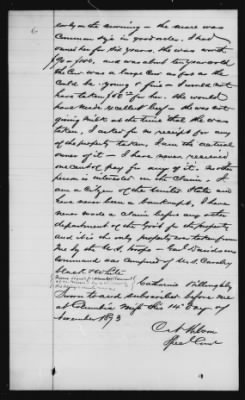 early in the morning - the mare was
common size in good order. I had
owned her for six years. She was worth
$90 or 100, and was about ten years old
the Cow was a large Cow as fat as she
could be. young & fine & I would not
have taken for her. She would
have made excellent beef - she was not
giving milk at the time that she was
taken, I asked for no receipt for any
of the property taken, I am the actual
owner of it - I have never received
one cent of pay for any of it. No other
person is interested in the claim. I
am a Citizen of the United States and
have never been a bankrupt, I have
never made a claim before any other
department of the Govt for this property
and it is the only property ever taken from
me by the U.S. troops - Genl Davidsons
Command was composed of U.S. Cavalry
black & white
Catharine Willoughby
Sworn to and subscribed before me
at Columbia Miss this 14th day of
November 1873
Spec Comr